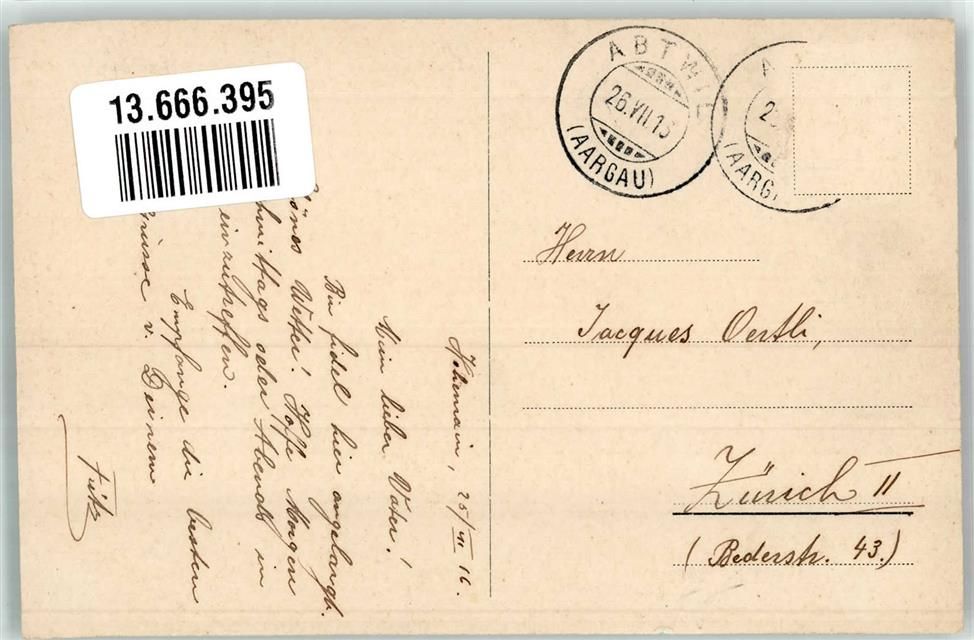 13.666.395
ABTWIL
26.VII.16
(AARGAU)
(AARG
Herrn
Jacques Oertli,
Zürich II
(Bederstr. 43.)
25/VII. 16.
Mein lieber Vater!
Bin fidel hier angelangt.
Wetter! Hoffe Morgen
oder Abends in
einzutreffen.
Empfange die besten
Grüsse v. Deinem
Fritz